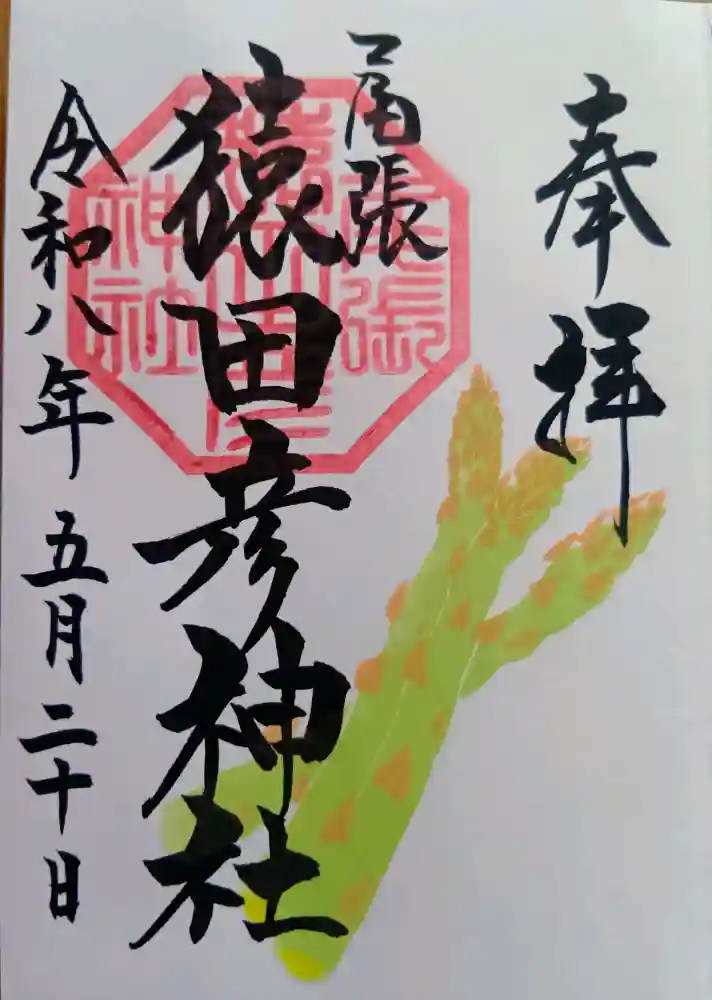 奉拝
尾張
猿田彦神社
令和八年五月二十日
尾張
猿田彦
神社